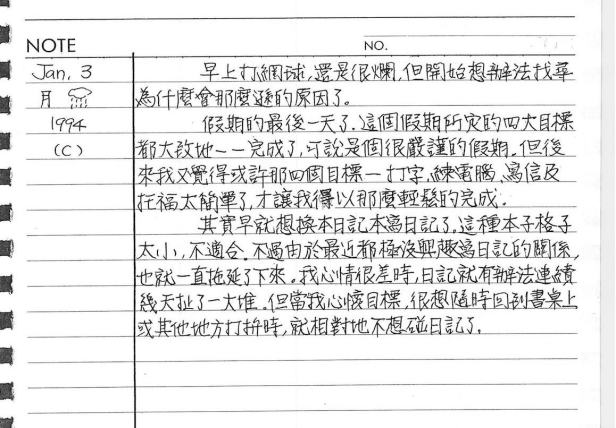 NOTE
NO.
Jan, 3
月
1994
(C)
早上打網球,還是很爛,但開始想辦法找尋
為什麼會那麼遜的原因了。
假期的最後一天了.這個假期所定的四大目標
都大致地一一完成了,可說是個很嚴謹的假期.但後
來我又覺得或許那四個目標一打字、練電腦、寫信及
托福太簡單了,才讓我得以那麼輕鬆的完成.
其實早就想換本日記本寫日記了.這種本子格子
太小,不適合.不過由於最近都極沒興趣寫日記的關係,
也就一直拖延了下來。我心情很差時,日記就有辦法連續
幾天扯了一大堆.但當我心懷目標,很想隨時回到書桌上
或其他地方打拚時,就相對地不想碰日記了.